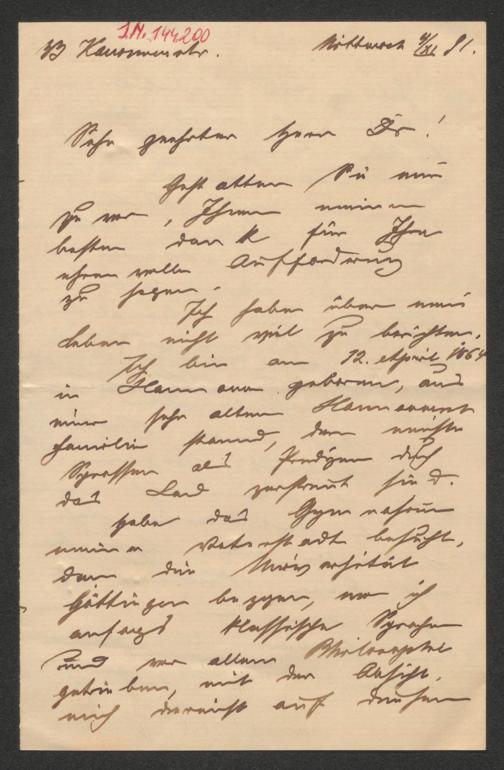 I.N. 144.200
33 Mittwoch 4/XI 91.
Sehr geehrter Herr Dr!
Gestatten Sie mir
zuvor, Ihnen meinen
besten Dank für Ihre
ehrenvolle Aufforderung
zu sagen.
Ich habe über mein
Leben nicht viel zu berichten.
Ich bin am 12. April 1864
in Hannover geboren, aus
einer sehr alten Hannoverschen
Familie stammend, deren meiste
Sprossen als Prediger durch
das Land zerstreut sind.
Habe das Gymnasium
meiner Vaterstadt besucht,
dann die Universität
Göttingen bezogen, wo ich
anfangs klassische Sprachen
und vor allem Philosophie
getrieben, mit der Absicht,
mich dereinst auf diesem